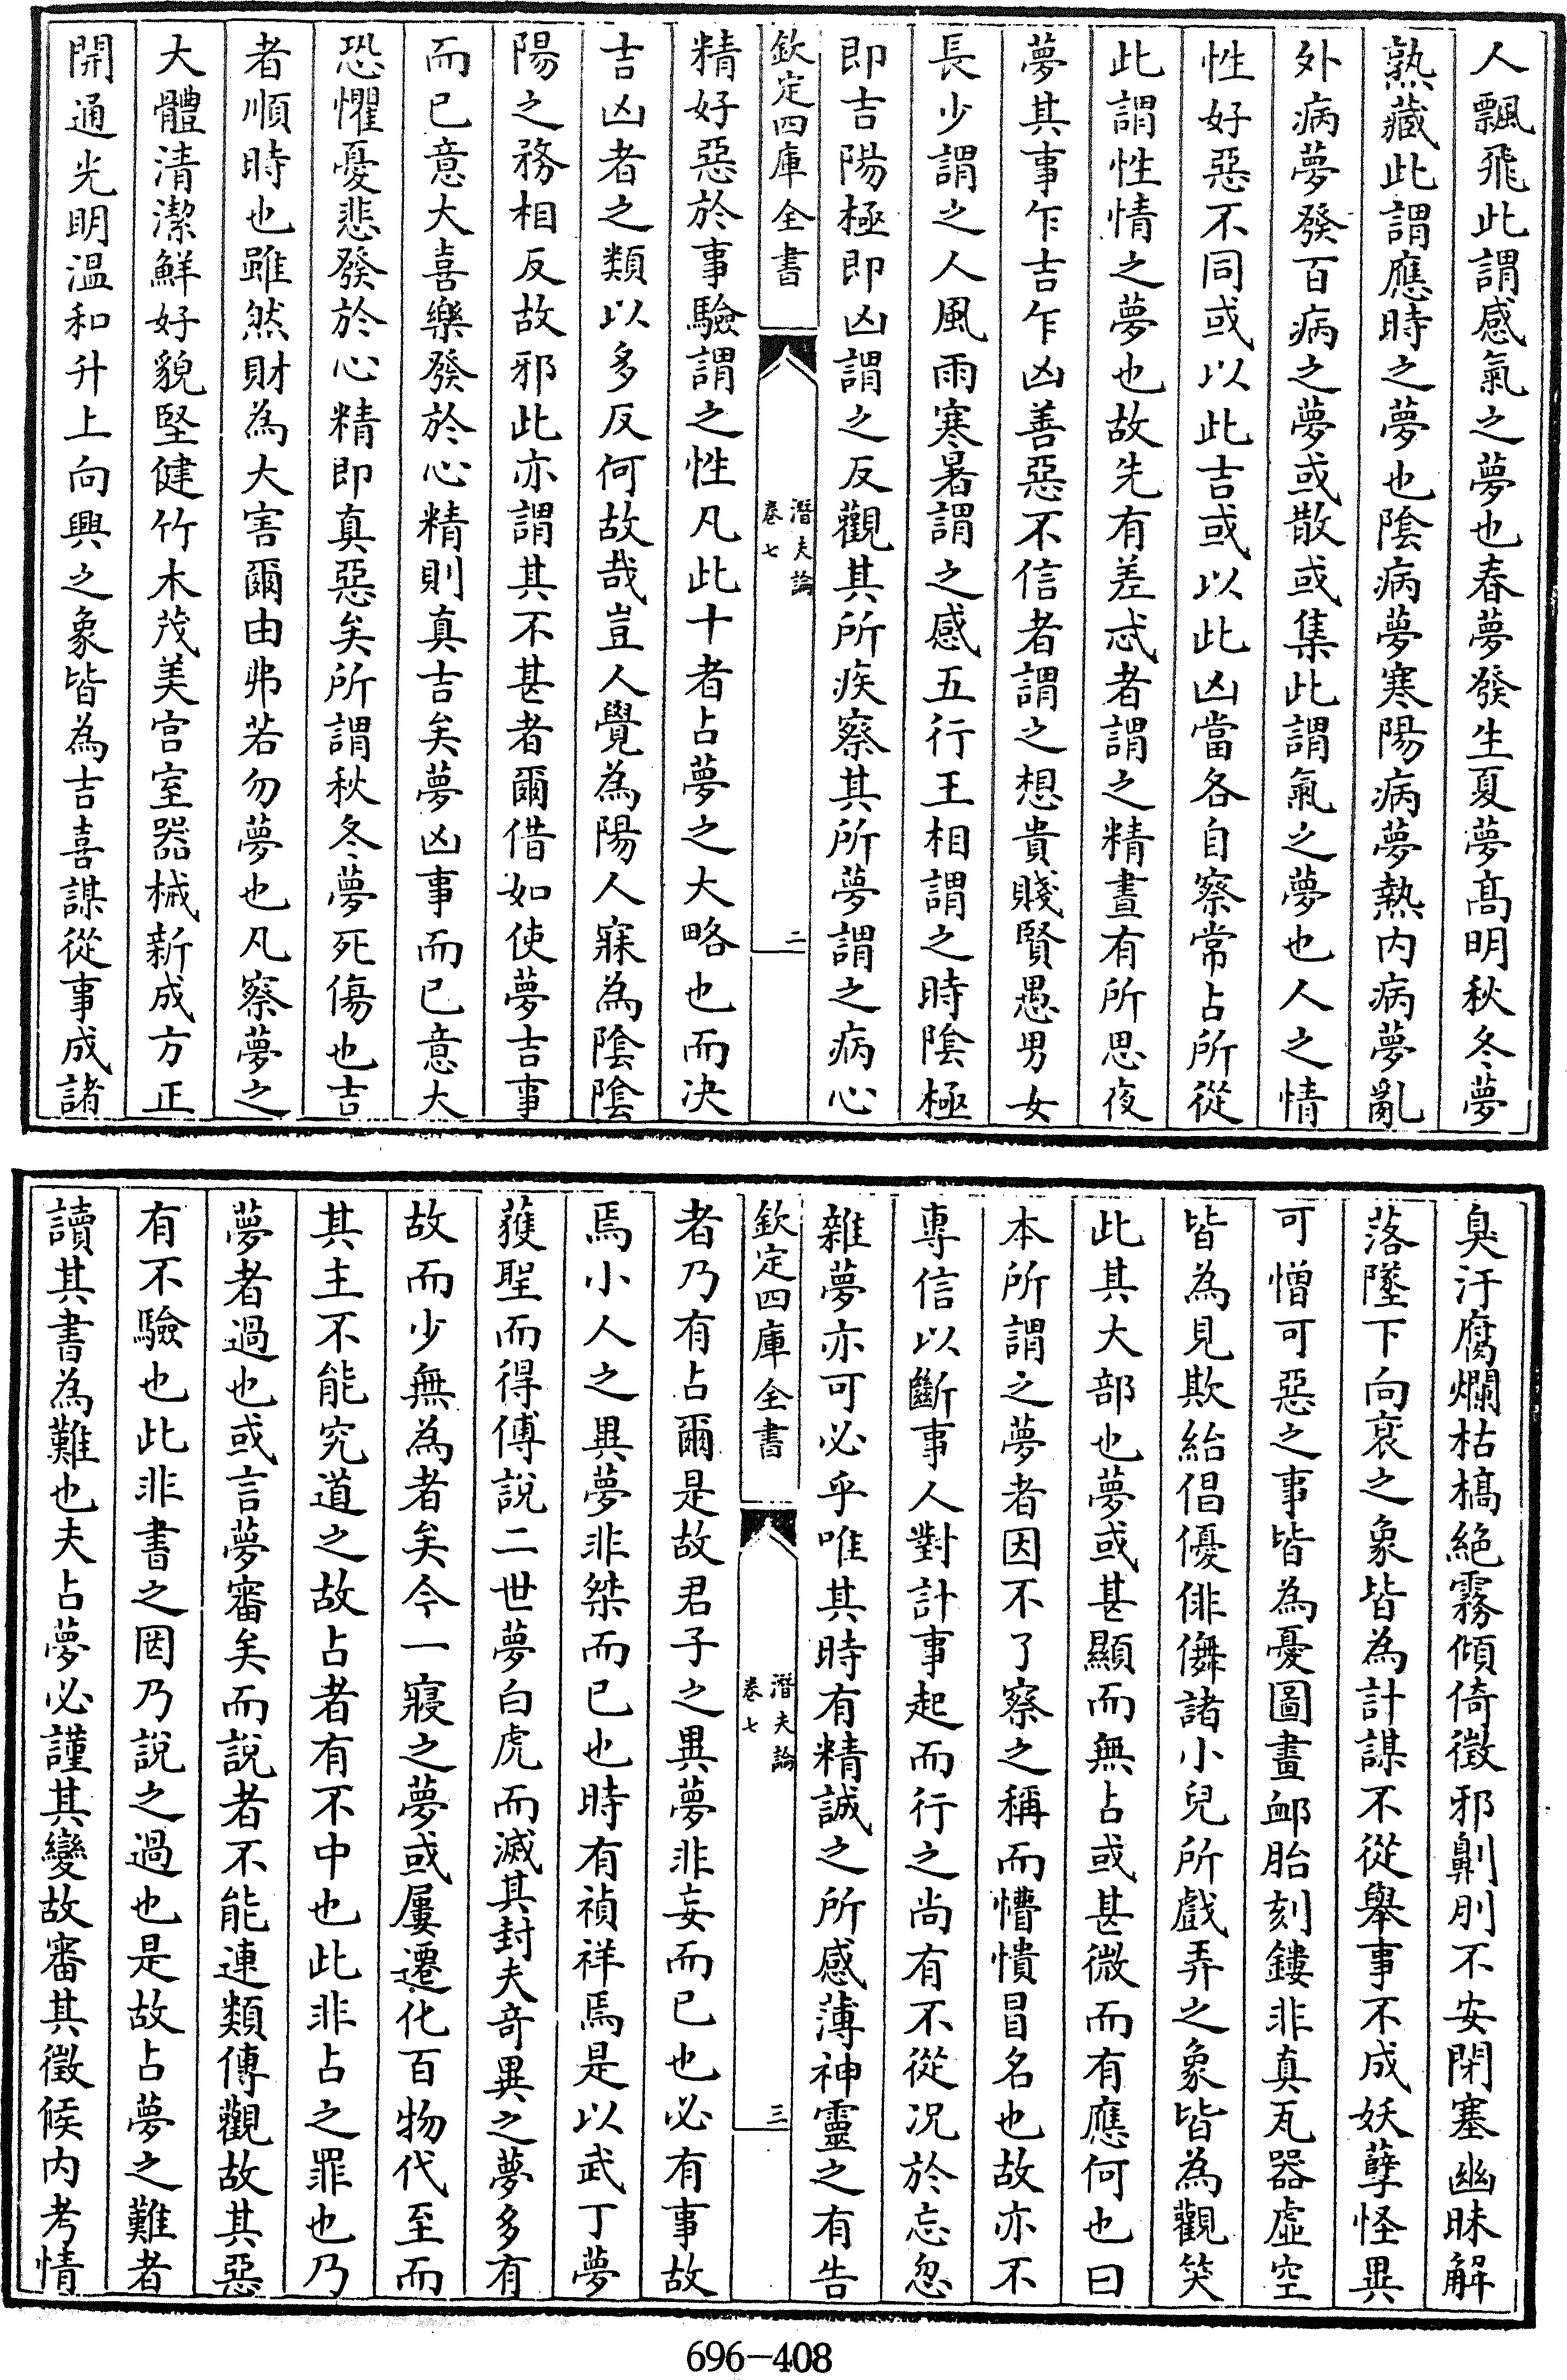 人飄飛此謂感氣之夢也春夢發生夏夢高明秋冬夢
熟藏此謂應時之夢也陰病夢寒陽病夢熱内病夢亂
外病夢發百病之夢或散或集此謂氣之夢也人之情
性好惡不同或以此吉或以此凶當各自察常占所從
此謂性情之夢也故先有差忒者謂之精晝有所思夜
夢其事乍吉乍凶善惡不信者謂之想貴賤賢愚男女
長少謂之人風雨寒暑謂之感五行王相謂之時陰極
即吉陽極即凶謂之反觀其所疾察其所夢謂之病心
欽定四庫全書
潛夫論
卷七
二
精好惡於事驗謂之性凡此十者占夢之大略也而決
吉凶者之類以多反何故哉豈人覺為陽人寐為陰陰
陽之務相反故邪此亦謂其不甚者爾借如使夢吉事
而已意大喜樂發於心精則真吉矣夢凶事而已意大
恐懼憂悲發於心精即真惡矣所謂秋冬夢死傷也吉
者順時也雖然財為大害爾由弗若勿夢也凡察夢之
大體清潔鮮好貌堅健竹木茂美宫室器械新成方正
開通光明溫和升上向興之象皆為吉喜謀從事成諸
臭汙腐爛枯槁絶霧傾倚徵邪劓刖不安閉塞幽昧解
落墜下向衰之象皆為計謀不從舉事不成妖孽怪異
可憎可惡之事皆為憂圖畫衃胎刻鏤非真瓦器虛空
皆為見欺紿倡優俳儛諸小兒所戲弄之象皆為觀笑
此其大部也夢或甚顯而無占或甚微而有應何也曰
本所謂之夢者因不了察之稱而懵憒冒名也故亦不
專信以斷事人對計事起而行之尚有不從况於忘忽
雜夢亦可必乎唯其時有精誠之所感薄神靈之有告
欽定四庫全書
潛夫論
卷七
三
者乃有占爾是故君子之異夢非妄而已也必有事故
焉小人之異夢非桀而已也時有禎祥焉是以武丁夢
獲聖而得傅說二世夢白虎而滅其封夫奇異之夢多有
故而少無為者矣今一寢之夢或屢遷化百物代至而
其主不能究道之故占者有不中也此非占之罪也乃
夢者過也或言夢審矣而說者不能連類傅觀故其惡
有不驗也此非書之罔乃說之過也是故占夢之難者
讀其書為難也夫占夢必謹其變故審其徵候内考情
696-408